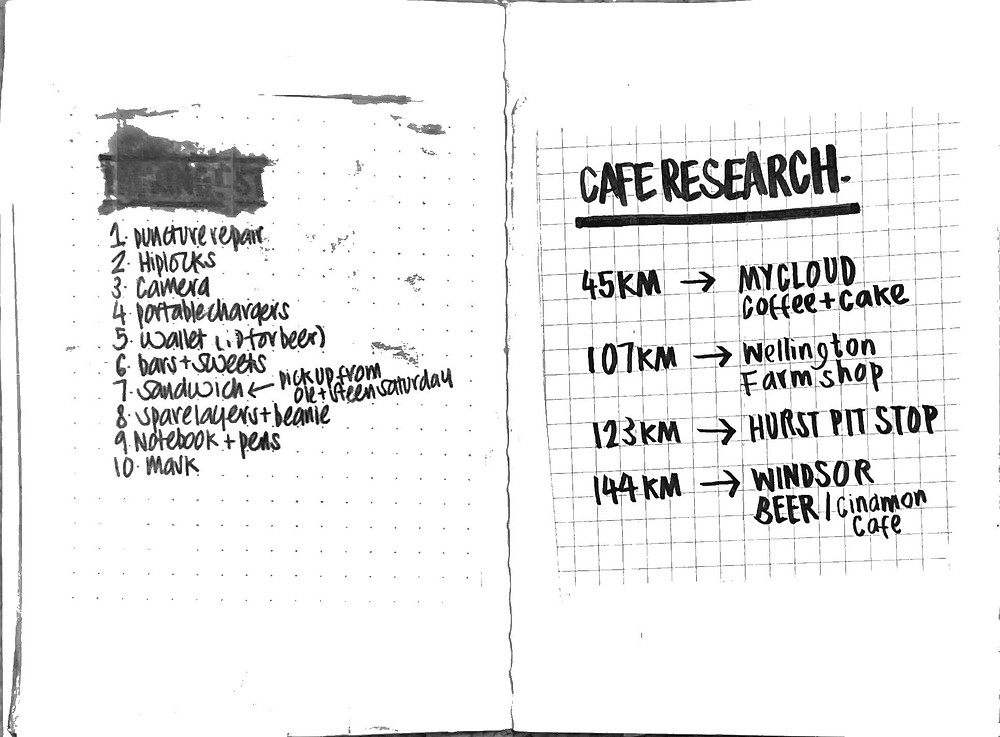 1. puncture repair
2. Hiplocks
3. Camera
4. portable chargers
5. wallet (ID for beer)
6. bars + sweets
7. sandwich ← pick up from
ole + steen saturday
8. spare layers + beanie
9. Notebook + pens
10. mark
CAFE RESEARCH.
45KM → MYCLOUD
Coffee + Cake
107KM → Wellington
Farm shop
123KM → HURST PIT STOP
144KM → WINDSOR
BEER / Cinamon
Cafe